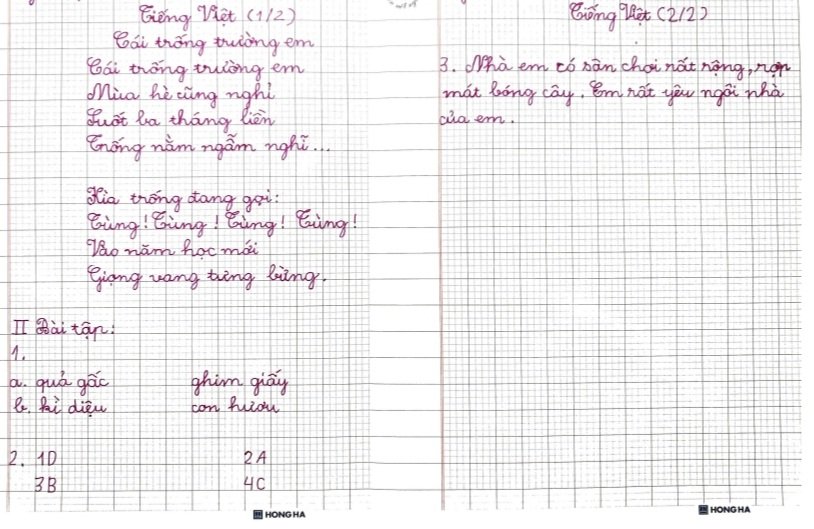 Tiếng Việt (1/2)
Cái trống trường em
Cái trống trường em
Mùa hè cũng nghỉ
Suốt ba tháng liền
Trống nằm ngẫm nghĩ...
Kìa trống đang gọi:
Tùng! Tùng! Tùng! Tùng!
Vào năm học mới
Giọng vang tưng bừng.
II Bài tập:
1.
a. quả gấc ghim giấy
b. kì diệu con hươu
2. 1D 2A
3B 4C
HONG HA
Tiếng Việt (2/2)
3. Nhà em có sân chơi rất rộng, rợp
mát bóng cây. Em rất yêu ngôi nhà
của em.
HONG HA